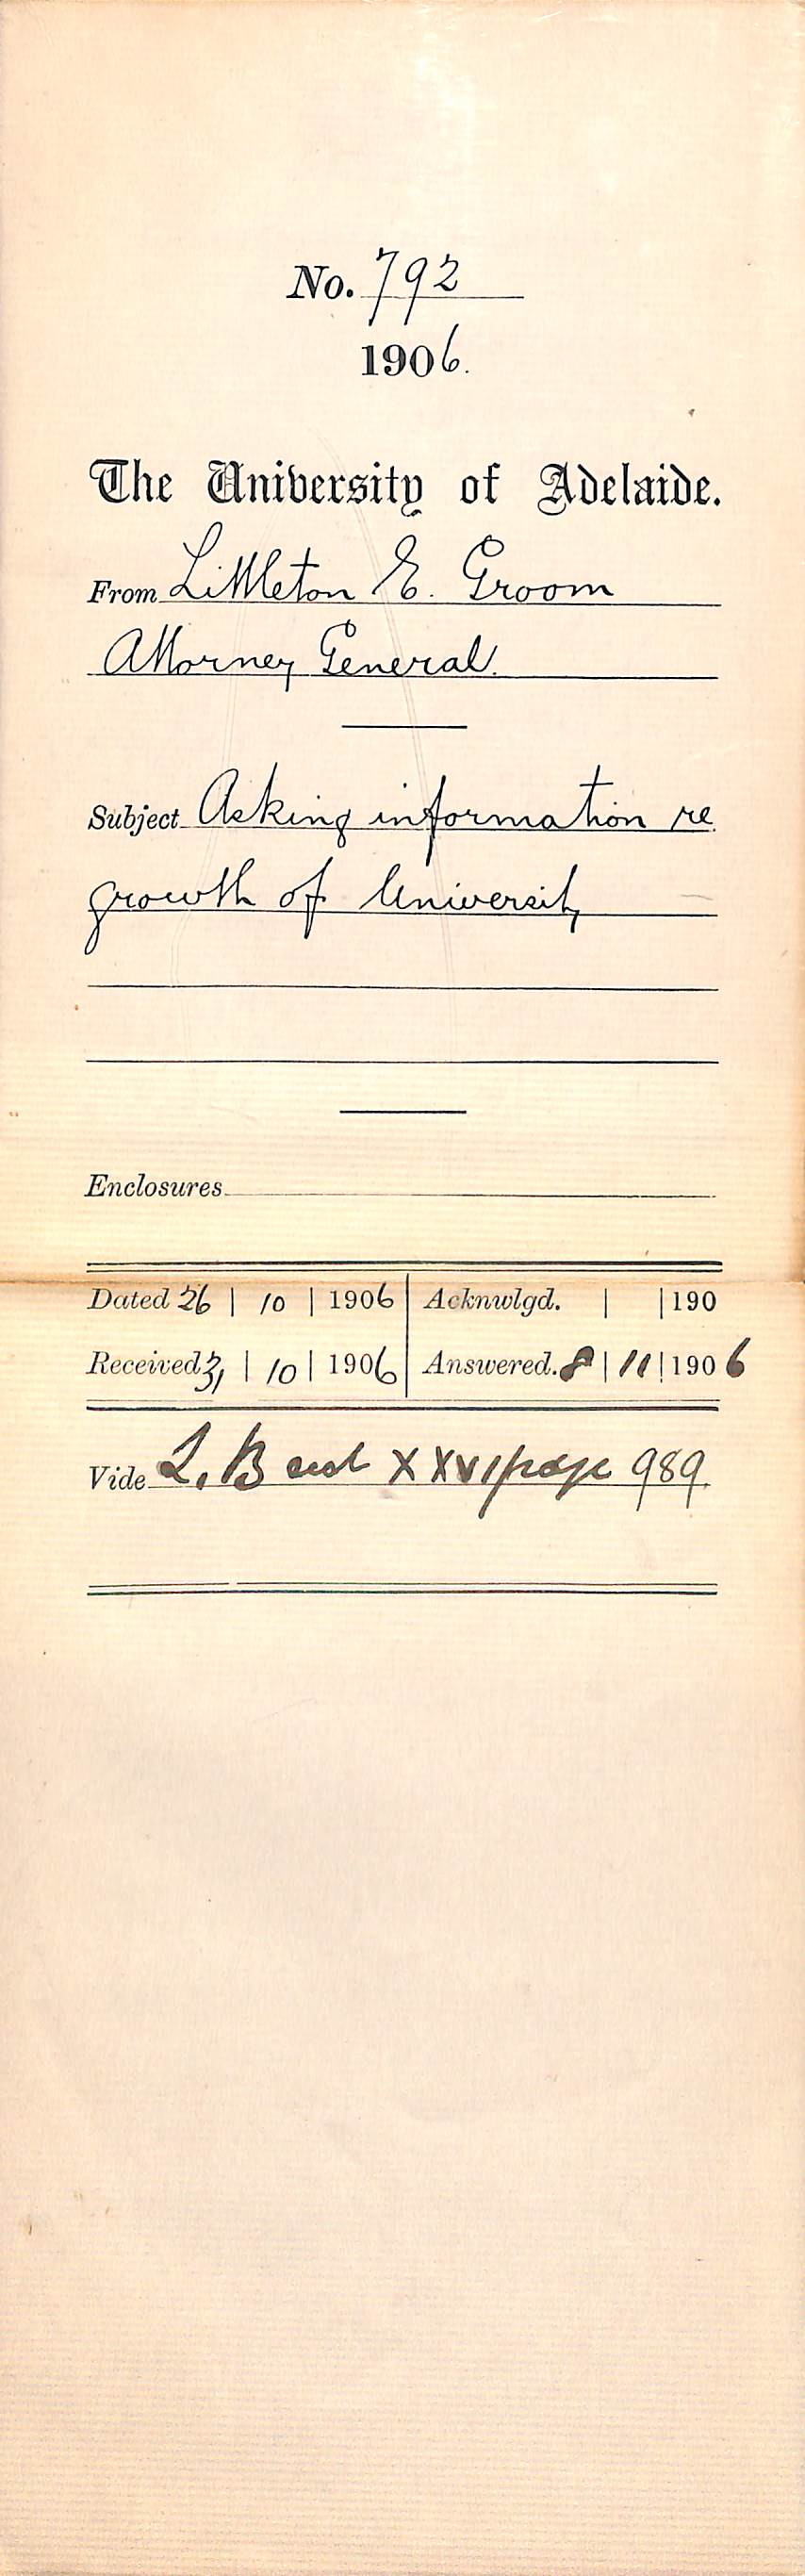 No. 792
1906.
The University of Adelaide.
From Littleton E. Groom
Attorney General.
Subject Asking information re
growth of University
Enclosures
Dated 26 | 10 | 1906 Acknwlgd. | | 190
Received 31 | 10 | 1906 Answered. 8 | 11 | 1906
Vide L. B XXVI page 989.